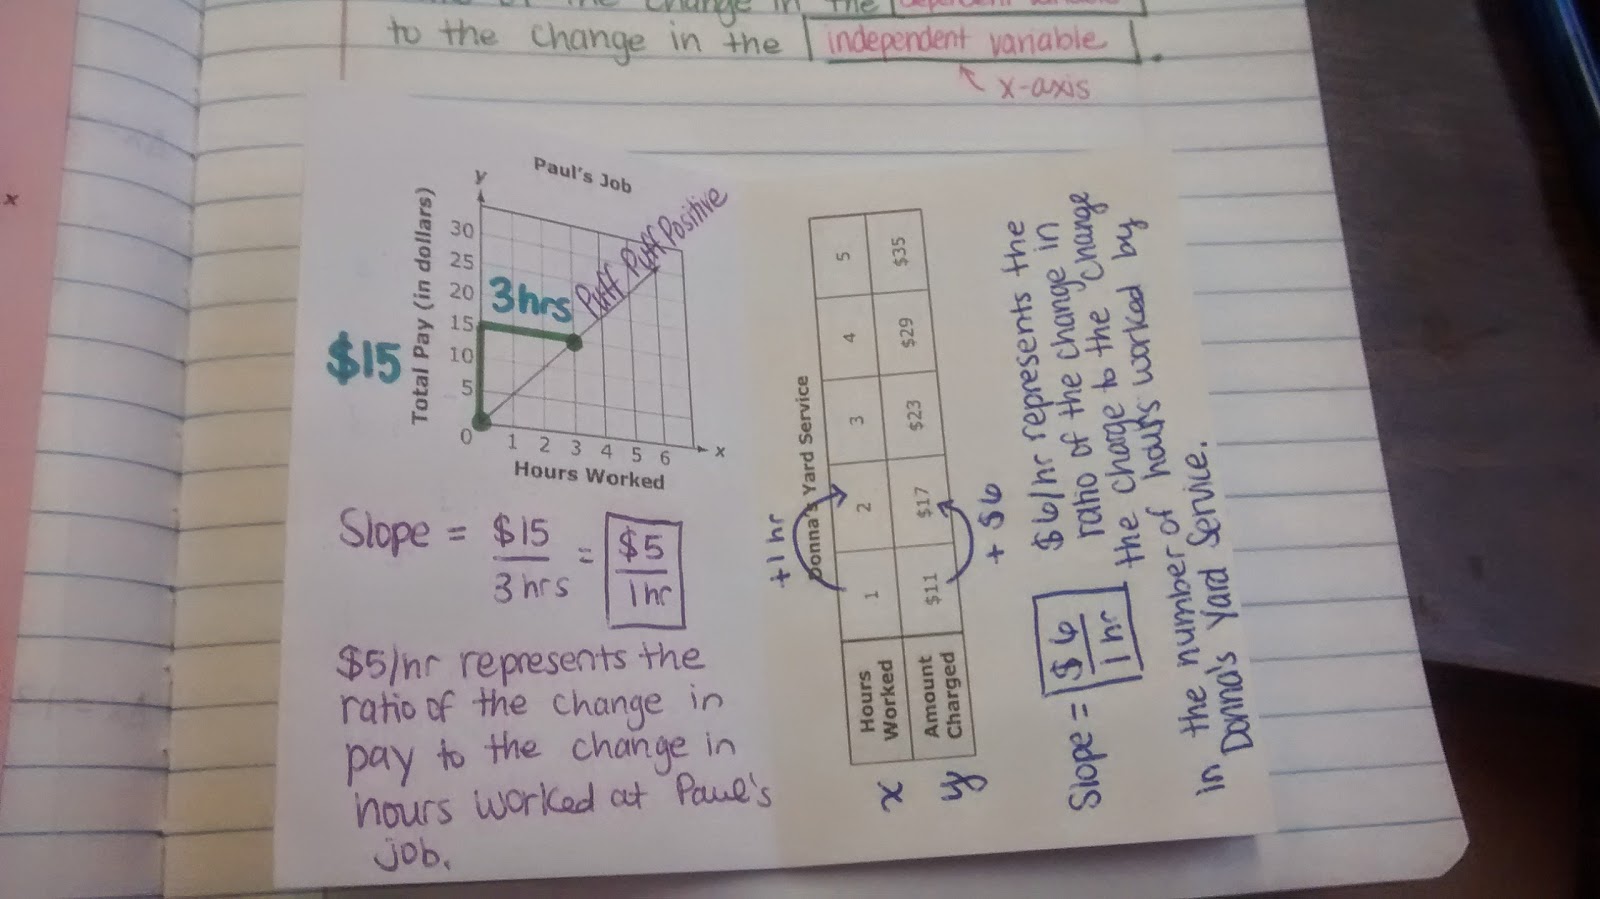 the change in the dependent variable
to the change in the independent variable.
x-axis
x
Paul's Job
y
Total Pay (in dollars)
30
25
20
15
10
5
0
1 2 3 4 5 6
x
Hours Worked
$15
3hrs
Puff Puff Positive
Slope = $15 / 3 hrs = $5 / 1 hr
$5/hr represents the
ratio of the change in
pay to the change in
hours worked at Paul's
job.
Donna's Yard Service
+1 hr
x Hours Worked 1 2 3 4 5
y Amount Charged $11 $17 $23 $29 $35
+ $6
Slope = $6 / 1 hr
$6/hr represents the
ratio of the change in
the charge to the change
in the number of hours worked by
Donna's Yard Service.